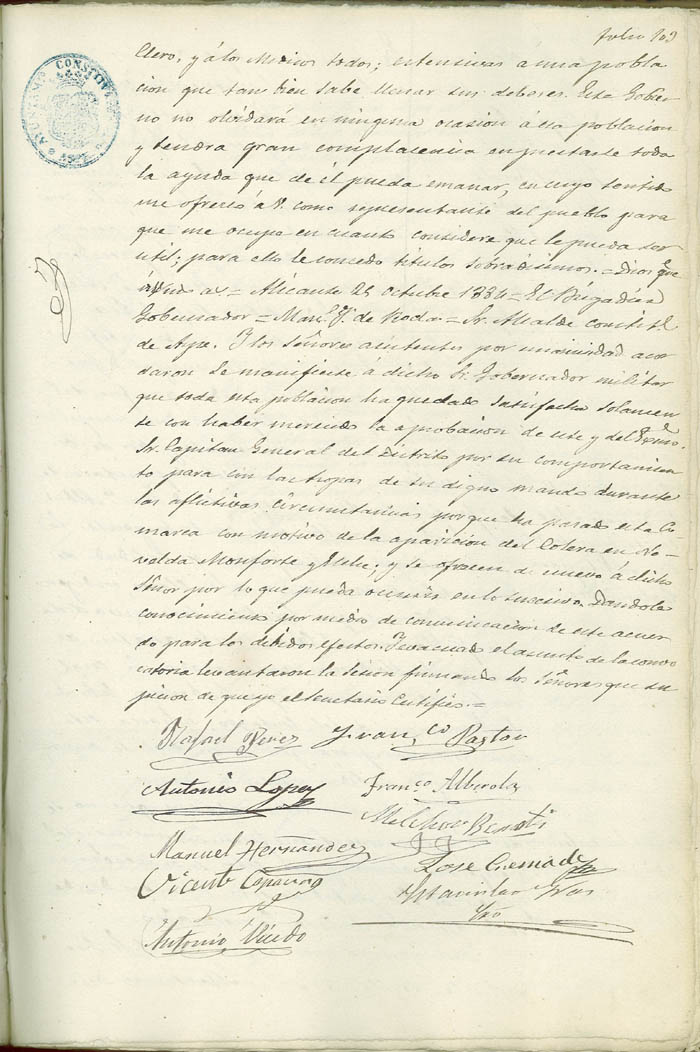 Folio 109
AYUNTAM.º CONSTITUC
Clero, y á los Medicos todos; estensivas á una pobla
cion que tambien sabe llenar sus deberes. Este Gobier
no no olvidará en ninguna ocasion á esa poblacion
y tendra gran complacencia en prestarle toda
la ayuda que de él pueda emanar, en cuyo sentido
me ofrezco á V. como representante del pueblo para
que me ocupe en cuanto considere que le pueda ser
util; para ello le concedo titulos sobradisimos. = Dios gue
á V. = Alicante 25 octubre 1884 = El Brigadier
Gobernador = Man.l V. de Roda = Sr. Alcalde constit.l
de Aspe. Y los Señores asistentes por unanimidad acor
daron se manifieste á dicho Sr. Gobernador militar
que toda esta poblacion ha quedado satisfecha solamen
te con haber merecido la aprobacion de este y del Exmo.
Sr. Capitan General del Distrito por su comportamien
to para con las tropas de su digno mando durante
las aflictivas circunstancias porque ha pasado esta Co
marca con motivo de la aparicion del Colera en No-
velda Monforte y Elche; y se ofrecen de nuevo á dicho
Señor por lo que pueda ocurrir en lo sucesivo. Dandole
conocimiento por medio de comunicacion de este acuer
do para los debidos efectos. Y evacuado el asunto de la convo
catoria levantaron la sesion firmando los Señores que su
pieron de que yo el Secretario Certifico. =
Rafael Perez Fran.co Pastor
Antonio Lopez Franc.o Alberola
Melchor
Manuel Hernandez
Jose Cremades
Vicente Caparros
Antonio Vicedo